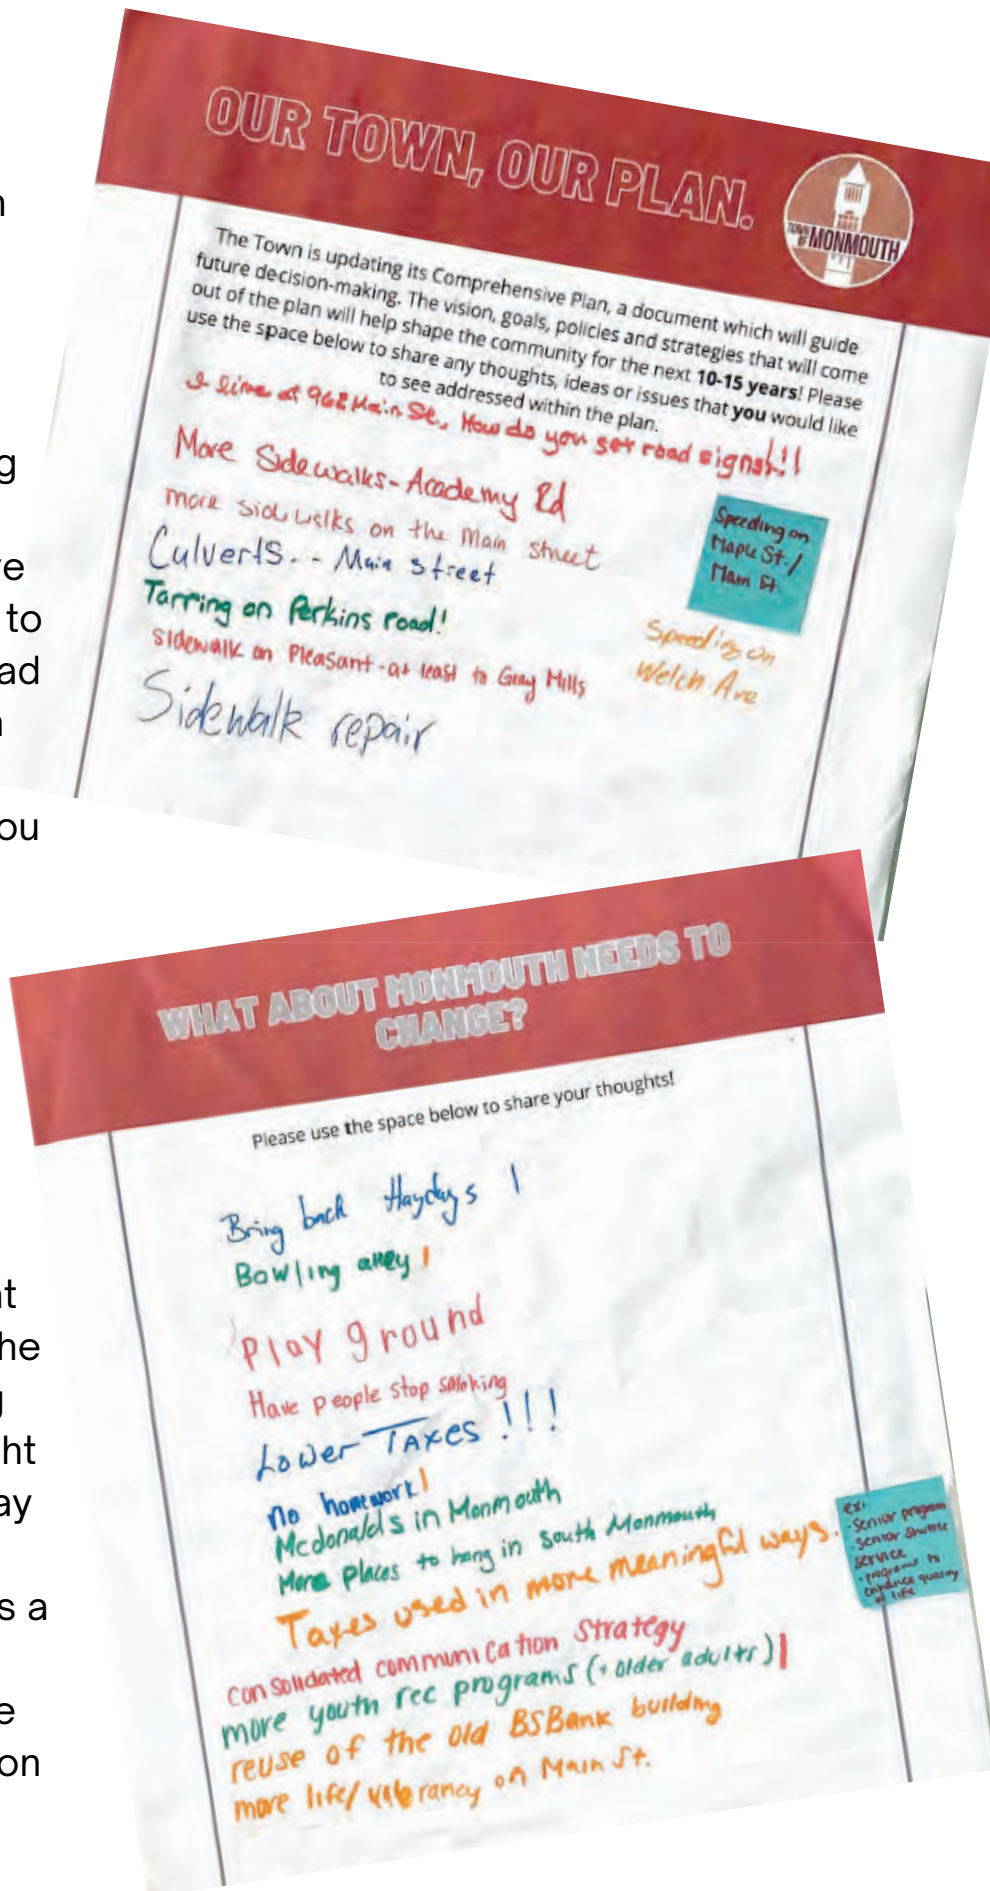 OUR TOWN, OUR PLAN.
TOWN OF
MONMOUTH
The Town is updating its Comprehensive Plan, a document which will guide
future decision-making. The vision, goals, policies and strategies that will come
out of the plan will help shape the community for the next 10-15 years! Please
use the space below to share any thoughts, ideas or issues that you would like
to see addressed within the plan.
I live at 962 Main St., How do you get road signs!!!
More Sidewalks - Academy Rd
more sidewalks on the Main street
Culverts. - - Main street
Tarring on Perkins road!
sidewalk on Pleasant - at least to Gray Mills
Sidewalk repair
Speeding on
Maple St. /
Main St.
Speeding on
Welch Ave
WHAT ABOUT MONMOUTH NEEDS TO
CHANGE?
Please use the space below to share your thoughts!
Bring back Haydays |
Bowling alley |
Play ground
Have people stop smoking
Lower TAXES !!!
no homework! |
Mcdonalds in Monmouth
More places to hang in South Monmouth
Taxes used in more meaningful ways.
ex:
- Senior program
- senior shuttle
service
- programs to
enhance quality
of life
consolidated communication strategy
more youth rec programs (+ older adults) |
reuse of the old BSBank building
more life/vibrancy on Main St.
g
ve
to
ad
ou
nt
he
g
ght
ay
s a
e
on